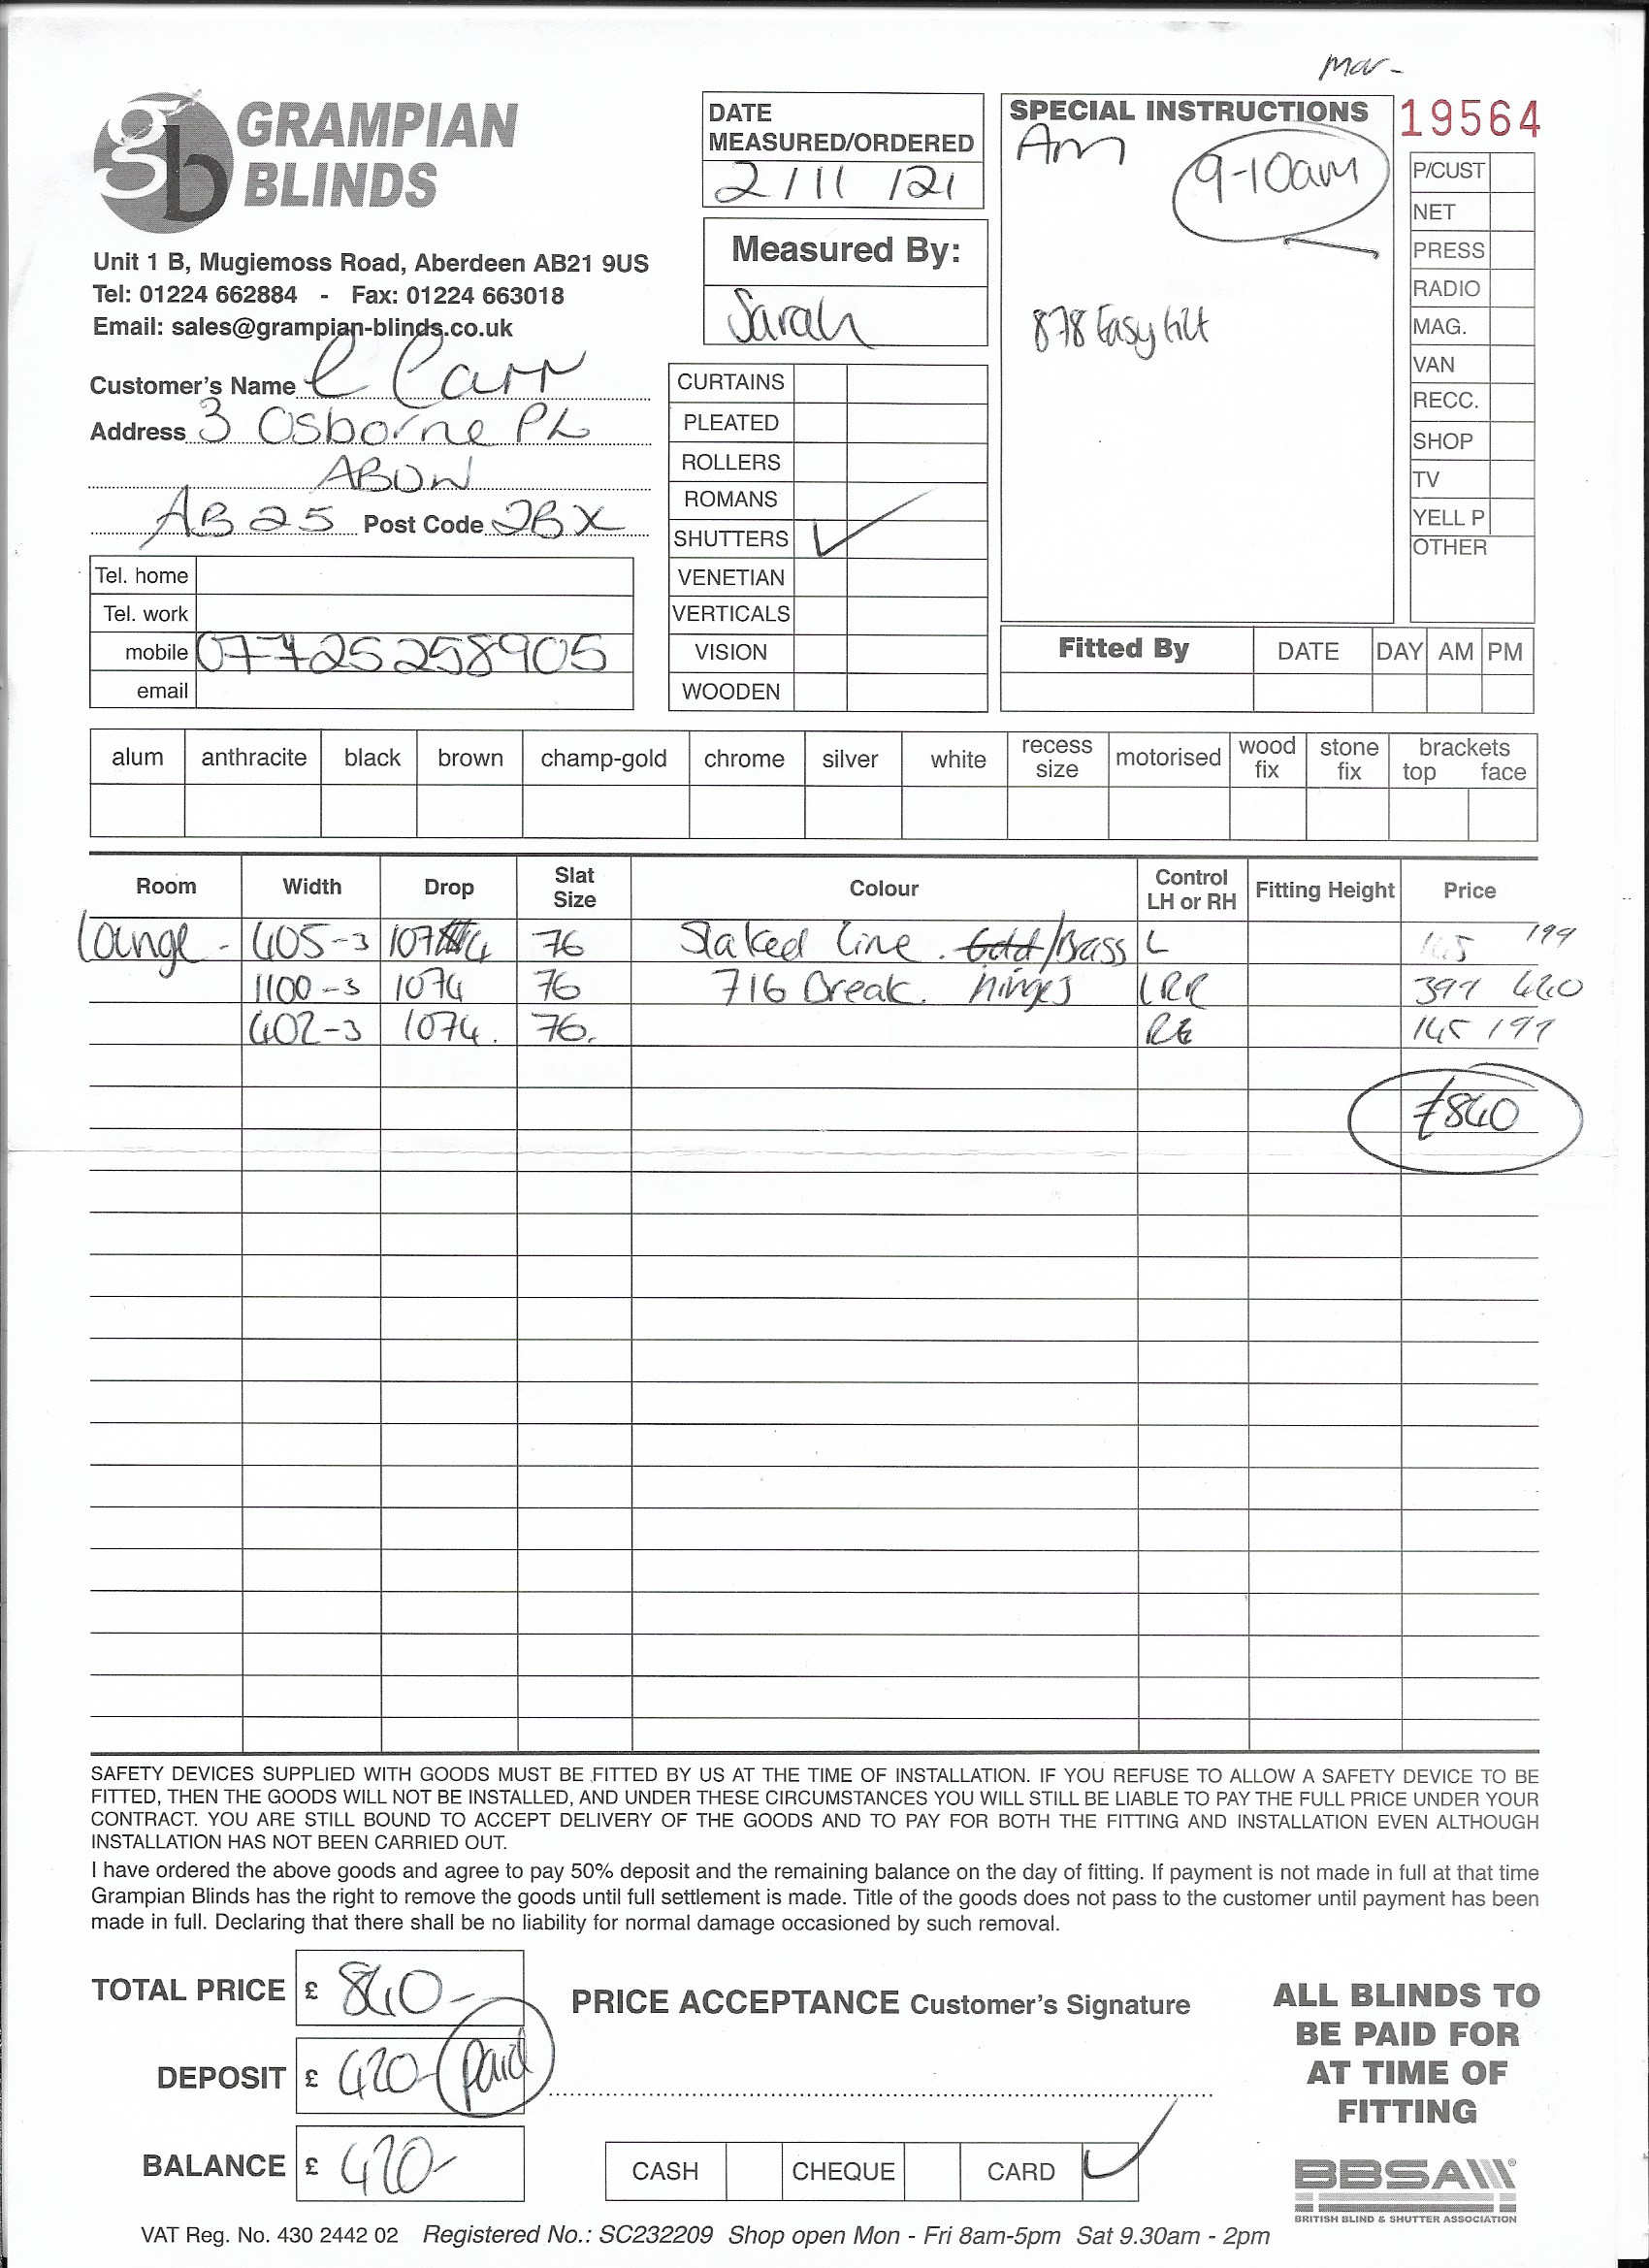 mar-
GRAMPIAN
BLINDS
Unit 1 B, Mugiemoss Road, Aberdeen AB21 9US
Tel: 01224 662884 - Fax: 01224 663018
Email: sales@grampian-blinds.co.uk
Customer's Name C Carr
Address 3 Osborne PL
ABDN
AB25 Post Code 2BX
Tel. home
Tel. work
mobile 077425258905
email
DATE
MEASURED/ORDERED
2/11/21
Measured By:
Sarah
CURTAINS
PLEATED
ROLLERS
ROMANS
SHUTTERS ✓
VENETIAN
VERTICALS
VISION
WOODEN
SPECIAL INSTRUCTIONS
Am 9-10am
878 Easy tilt
19564
P/CUST
NET
PRESS
RADIO
MAG.
VAN
RECC.
SHOP
TV
YELL P
OTHER
Fitted By DATE DAY AM PM
alum anthracite black brown champ-gold chrome silver white recess size motorised wood fix stone fix brackets top face
Room Width Drop Slat Size Colour Control LH or RH Fitting Height Price
Lounge - 405-3 1074 76 Staked Line. Gold/Bass L 145 199
1100-3 1074 76 716 Break. hinges LRR 399 440
402-3 1074. 76. R 145 199
£840
SAFETY DEVICES SUPPLIED WITH GOODS MUST BE FITTED BY US AT THE TIME OF INSTALLATION. IF YOU REFUSE TO ALLOW A SAFETY DEVICE TO BE
FITTED, THEN THE GOODS WILL NOT BE INSTALLED, AND UNDER THESE CIRCUMSTANCES YOU WILL STILL BE LIABLE TO PAY THE FULL PRICE UNDER YOUR
CONTRACT. YOU ARE STILL BOUND TO ACCEPT DELIVERY OF THE GOODS AND TO PAY FOR BOTH THE FITTING AND INSTALLATION EVEN ALTHOUGH
INSTALLATION HAS NOT BEEN CARRIED OUT.
I have ordered the above goods and agree to pay 50% deposit and the remaining balance on the day of fitting. If payment is not made in full at that time
Grampian Blinds has the right to remove the goods until full settlement is made. Title of the goods does not pass to the customer until payment has been
made in full. Declaring that there shall be no liability for normal damage occasioned by such removal.
TOTAL PRICE £ 840-
DEPOSIT £ 420- paid
BALANCE £ 420-
PRICE ACCEPTANCE Customer's Signature
CASH CHEQUE CARD ✓
ALL BLINDS TO
BE PAID FOR
AT TIME OF
FITTING
BBSA
BRITISH BLIND & SHUTTER ASSOCIATION
VAT Reg. No. 430 2442 02 Registered No.: SC232209 Shop open Mon - Fri 8am-5pm Sat 9.30am - 2pm